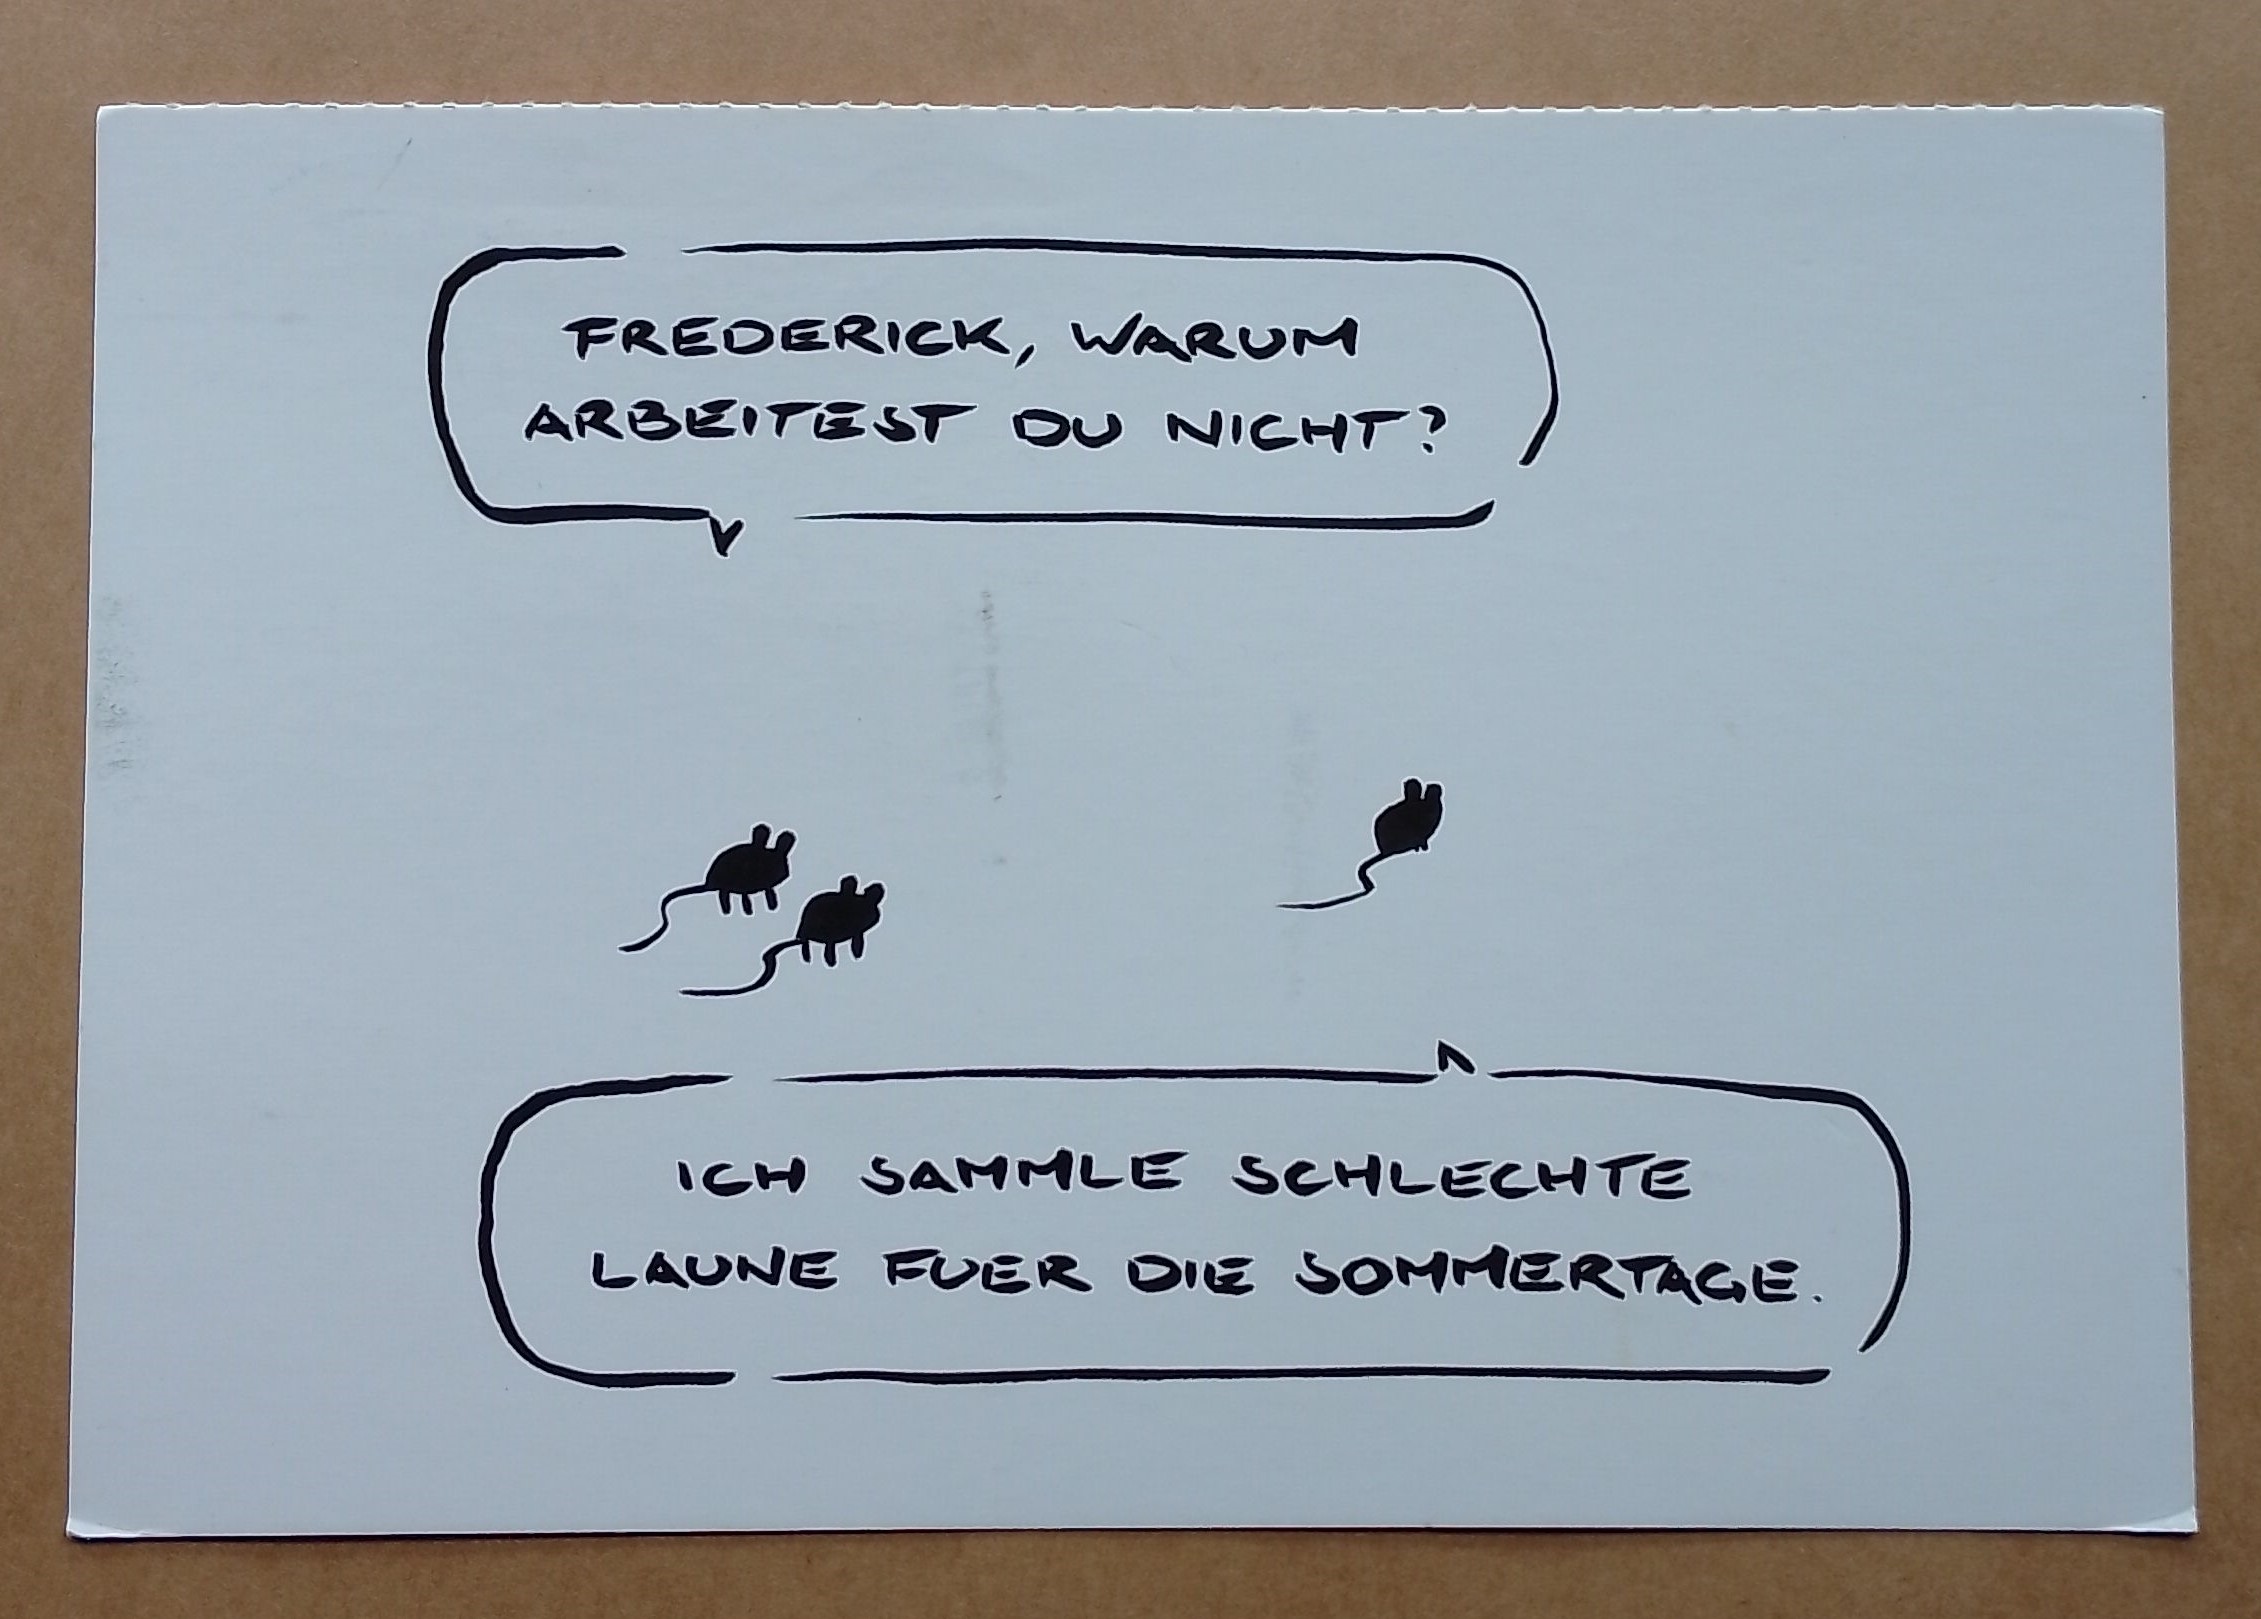 FREDERICK, WARUM
ARBEITEST DU NICHT?
ICH SAMMLE SCHLECHTE
LAUNE FUER DIE SOMMERTAGE.